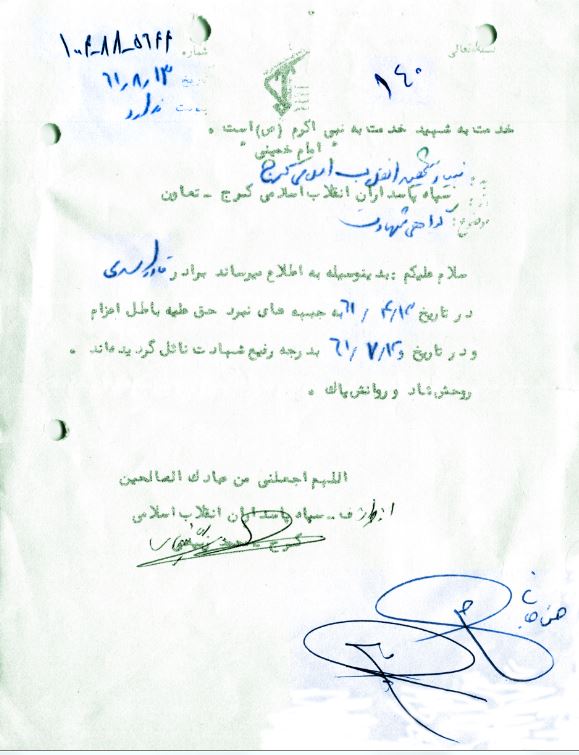 بسمه تعالی
شماره ۱۰۴-۸۸-۵۶۴۴
تاریخ ۶۱/۸/۱۳
پیوست ندارد
خدمت به شهید خدمت به نبی اکرم (ص) است .
" امام خمینی "
به: بنیاد شهید انقلاب اسلامی کرج
از: سپاه پاسداران انقلاب اسلامی کرج - تعاون
موضوع: گواهی شهادت
سلام علیکم : بدینوسیله به اطلاع میرساند برادر
در تاریخ ۶۱/۴/۱۳ به جبهه های نبرد حق علیه باطل اعزام
و در تاریخ ۶۱/۷/ بدرجه رفیع شهادت نائل گردیده‌اند .
روحش شاد و روانش پاک .
اللهم اجعلنی من عبادک الصالحین
از طرف - سپاه پاسداران انقلاب اسلامی
کرج